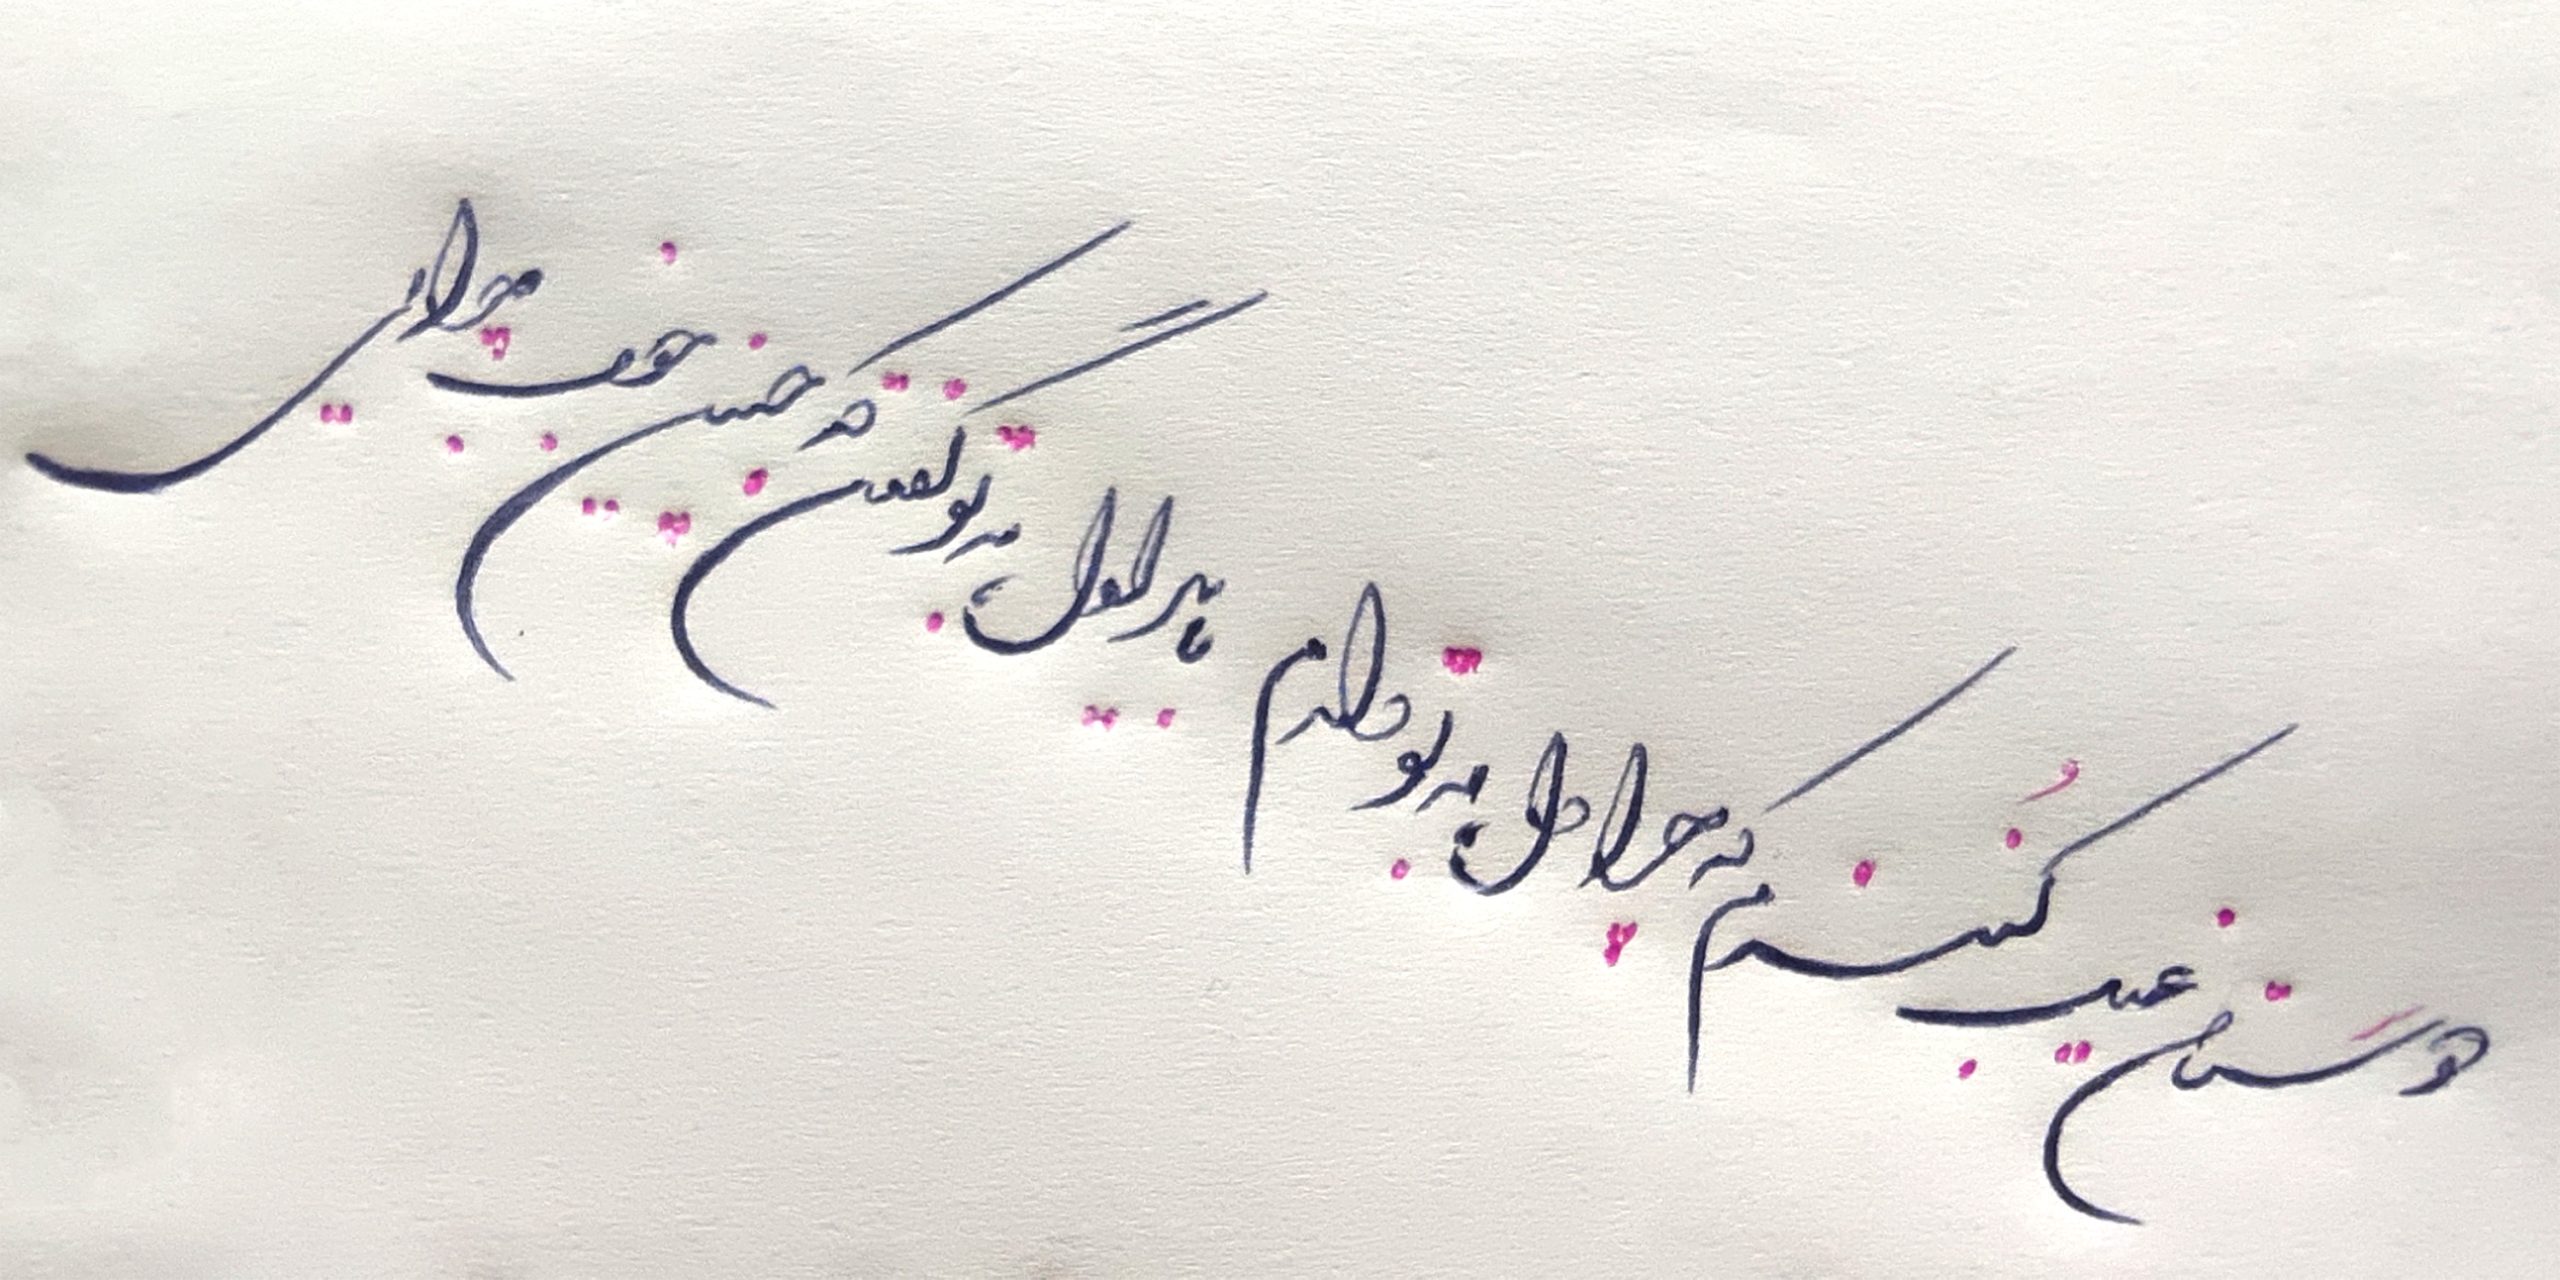 دوستان عیب کنندم که چرا دل به تو دادم
باید اول به تو گفتن که چنین خوب چرایی